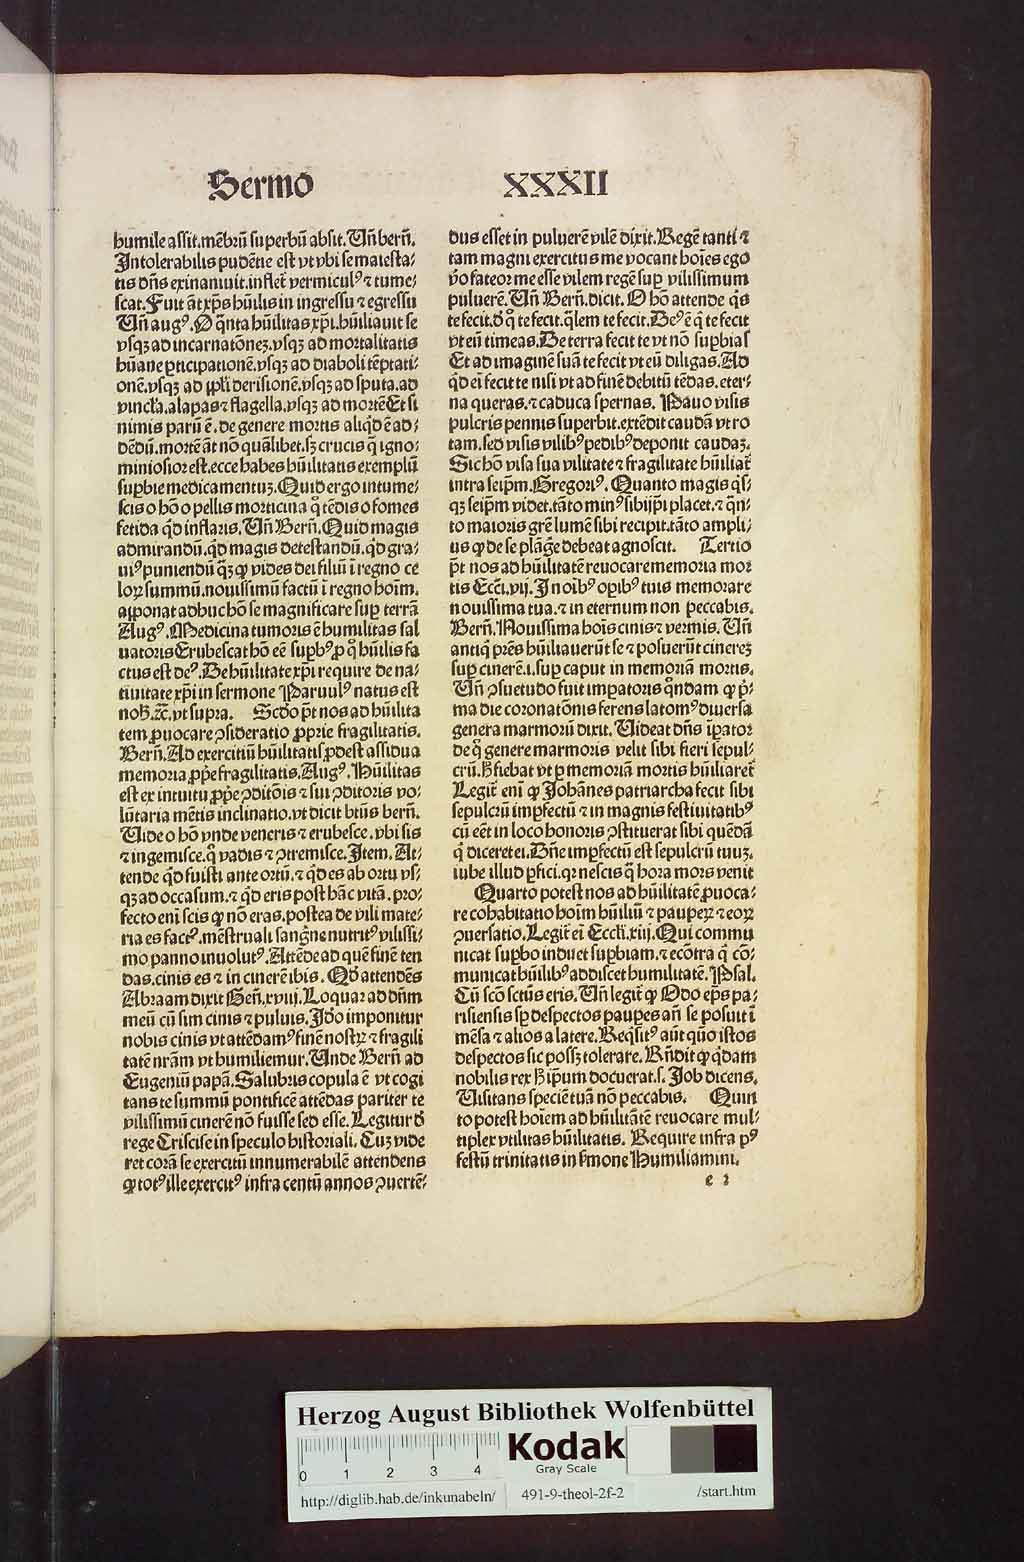 Sermo XXXII
humile assit. mēbrū superbū absit. Uñ berñ.
Intolerabilis pudētie est vt vbi se maiesta-
tis dñs exinaniuit. inflet vermiculꝰ ⁊ tume-
scat. Fuit āt xp̄s hūilis in ingressu ⁊ egressu
Uñ augꝰ. O q̄nta hūilitas xp̄i. hūiliauit se
vsqꝫ ad incarnatōneꝫ. vsqꝫ ad mortalitatis
hūane ꝑticipationē. vsqꝫ ad diaboli tēptati-
onē. vsqꝫ ad ppl̄i derisionē. vsqꝫ ad sputa. ad
vincl̄a. alapas ⁊ flagella. vsqꝫ ad mortē Et si
nimis parū ē. de genere mortis aliqͥd ē ad-
dēdū. mortē āt nō quālibet. sꝫ crucis q̄ igno-
miniosior est. ecce habes hūilitatis exemplū
suꝑbie medicamentuꝫ. Quid ergo intume-
scis o hō o pellis morticina q̄ tēdis o fomes
fetida qͥd inflaris. Uñ Berñ. Quid magis
admirandū. qͥd magis detestandū. qͥd gra-
uiꝰ puniendū qͣꝫ ꝙ vides dei filiū ī regno ce
loꝝ summū. nouissimū factū ī regno hoīm.
apponat adhuc hō se magnificare suꝑ terrā
Augꝰ. Medicina tumoris ē humilitas sal
uatoris Erubescat hō eē suꝑbꝰ ꝓ qͦ hūilis fa
ctus est deꝰ. De hūilitate xp̄i require de na-
tiuitate xp̄i in sermone Paruulꝰ natus est
nob̄. ꝛc̄. vt supra. Scd̄o pt̄ nos ad hūilita
tem ꝓuocare ꝯsideratio ꝓprie fragilitatis.
Berñ. Ad exercitiū hūilitatis ꝓdest assidua
memoria ꝓpe fragilitatis. Augꝰ. Hūilitas
est ex intuitu ꝓpe ꝯditōis ⁊ sui ꝯditoris vo-
lūtaria mētis inclinatio. vt dicit btūs berñ.
Uide o hō vnde veneris ⁊ erubesce. vbi sis
⁊ ingemisce. qͦ vadis ⁊ ꝯtremisce. Item. At-
tende qͥd fuisti ante ortū. ⁊ qͥd es ab ortu vs-
qꝫ ad occasum. ⁊ qͥd eris post hāc vitā. pro-
fecto eni scis ꝙ nō eras. postea de vili mate-
ria es factꝰ. mēstruali sangne nutritꝰ vilissi-
mo panno inuolutꝰ. Attēde ad quē finē ten
das. cinis es ⁊ in cinerē ibis. Qd̄ attendēs
Abraam dixit Geñ. xviij. Loquar ad dñm
meū cū sim cinis ⁊ puluis. Id̄o imponitur
nobis cinis vt attēdamꝰ finē nostꝝ ⁊ fragili
tatē nrām vt humiliemur. Unde Berñ ad
Eugeniū papā. Salubris copula ē vt cogi
tans te summū pontificē attēdas pariter te
vilissimū cinerē nō fuisse sed esse. Legitur d̄
rege Criscise in speculo historiali. Cuꝫ vide
ret corā se exercitū innumerabilē attendens
ꝙ totꝰ ille exercitꝰ infra centū annos ꝯuertē-
dus esset in puluerē vilē dixit. Regē tanti ⁊
tam magni exercitus me vocant hoīes ego
v̄o fateor me esse vilem regē suꝑ vilissimum
puluerē. Uñ Berñ. dicit. O hō attende qͥs
te fecit. d̄ qͦ te fecit. qͣlem te fecit. Deꝰ ē q̄ te fecit
vt eū timeas. De terra fecit te vt nō suꝑbias
Et ad imaginē suā te fecit vt eū diligas. Ad
qͥd ei fecit te nisi vt ad finē debitū tēdas. eter-
na queras. ⁊ caduca spernas. Pauo visis
pulcris pennis superbit. extēdit caudā vt ro
tam. sed visis vilibꝰ pedibꝰ deponit caudaꝫ.
Sic hō visa sua vilitate ⁊ fragilitate hūiliat̄
intra seipm̄. Gregoriꝰ. Quanto magis qͥs-
qꝫ seipm̄ videt. tāto minꝰ sibijpi placet. ⁊ qͣn-
to maioris gr̄e lumē sibi recipit. tāto ampli-
us ꝙ de se plāge debeat agnoscit. Tertio
pt̄ nos ad hūilitatē reuocare memoria mor
tis Eccl̄i. vij. In oībꝰ oꝑibꝰ tuis memorare
nouissima tua. ⁊ in eternum non peccabis.
Berñ. Nouissima hoīs cinis ⁊ vermis. Uñ
antiqͥ prēs hūiliauerūt se ⁊ posuerūt cinereꝫ
suꝑ cinerē. i. suꝑ caput in memoriā mortis.
Uñ ꝯsuetudo fuit imꝑatoris qͦndam ꝙ pͥ-
ma die coronatōnis ferens latomꝰ diuersa
genera marmorū dixit. Uideat dñs īꝑator
de qͦ genere marmoris velit sibi fieri sepul-
crū. h̄ fiebat vt ꝑ memoriā mortis hūiliaret̄
Legit̄ eni ꝙ Johānes patriarcha fecit sibi
sepulcrū imꝑfectū ⁊ in magnis festiuitatibꝰ
cū eēt in loco honoris ꝯstituerat sibi quēdā
qͥ diceret ei. Dñe imꝑfectū est sepulcrū tuuꝫ.
iube illud ꝑfici. qꝛ nescis q̄ hora mors venit
Quarto potest nos ad hūilitatē ꝓuoca-
re cohabitatio hoīm hūiliū ⁊ paupeꝝ ⁊ eoꝝ
ꝯuersatio. Legit̄ ei Eccl̄i. xiij. Qui commu
nicat suꝑbo induet suꝑbiam. ⁊ ecōtra qͥ cō-
municat hūilibꝰ addiscet humilitatē. Psal.
Cū scō sctūs eris. Uñ legit̄ ꝙ Odo ep̄s pa-
risiensis sp̄ despectos pauꝑes añ se posuit ī
mēsa ⁊ alios a latere. Reqͥsitꝰ aūt quō istos
despectos sic possꝫ tolerare. Rñdit ꝙ qͥdam
nobilis rex h̄ ip̄um docuerat. s. Job dicens.
Uisitans speciē tuā nō peccabis. Quin
to potest hoīem ad hūilitātē reuocare mul-
tiplex vtilitas hūilitatis. Require infra pꝰ
festū trinitatis in s̄mone Humiliamini.
e 2
Herzog August Bibliothek Wolfenbüttel
Kodak
Gray Scale
0 1 2 3 4
http://diglib.hab.de/inkunabeln/ 491-9-theol-2f-2 /start.htm